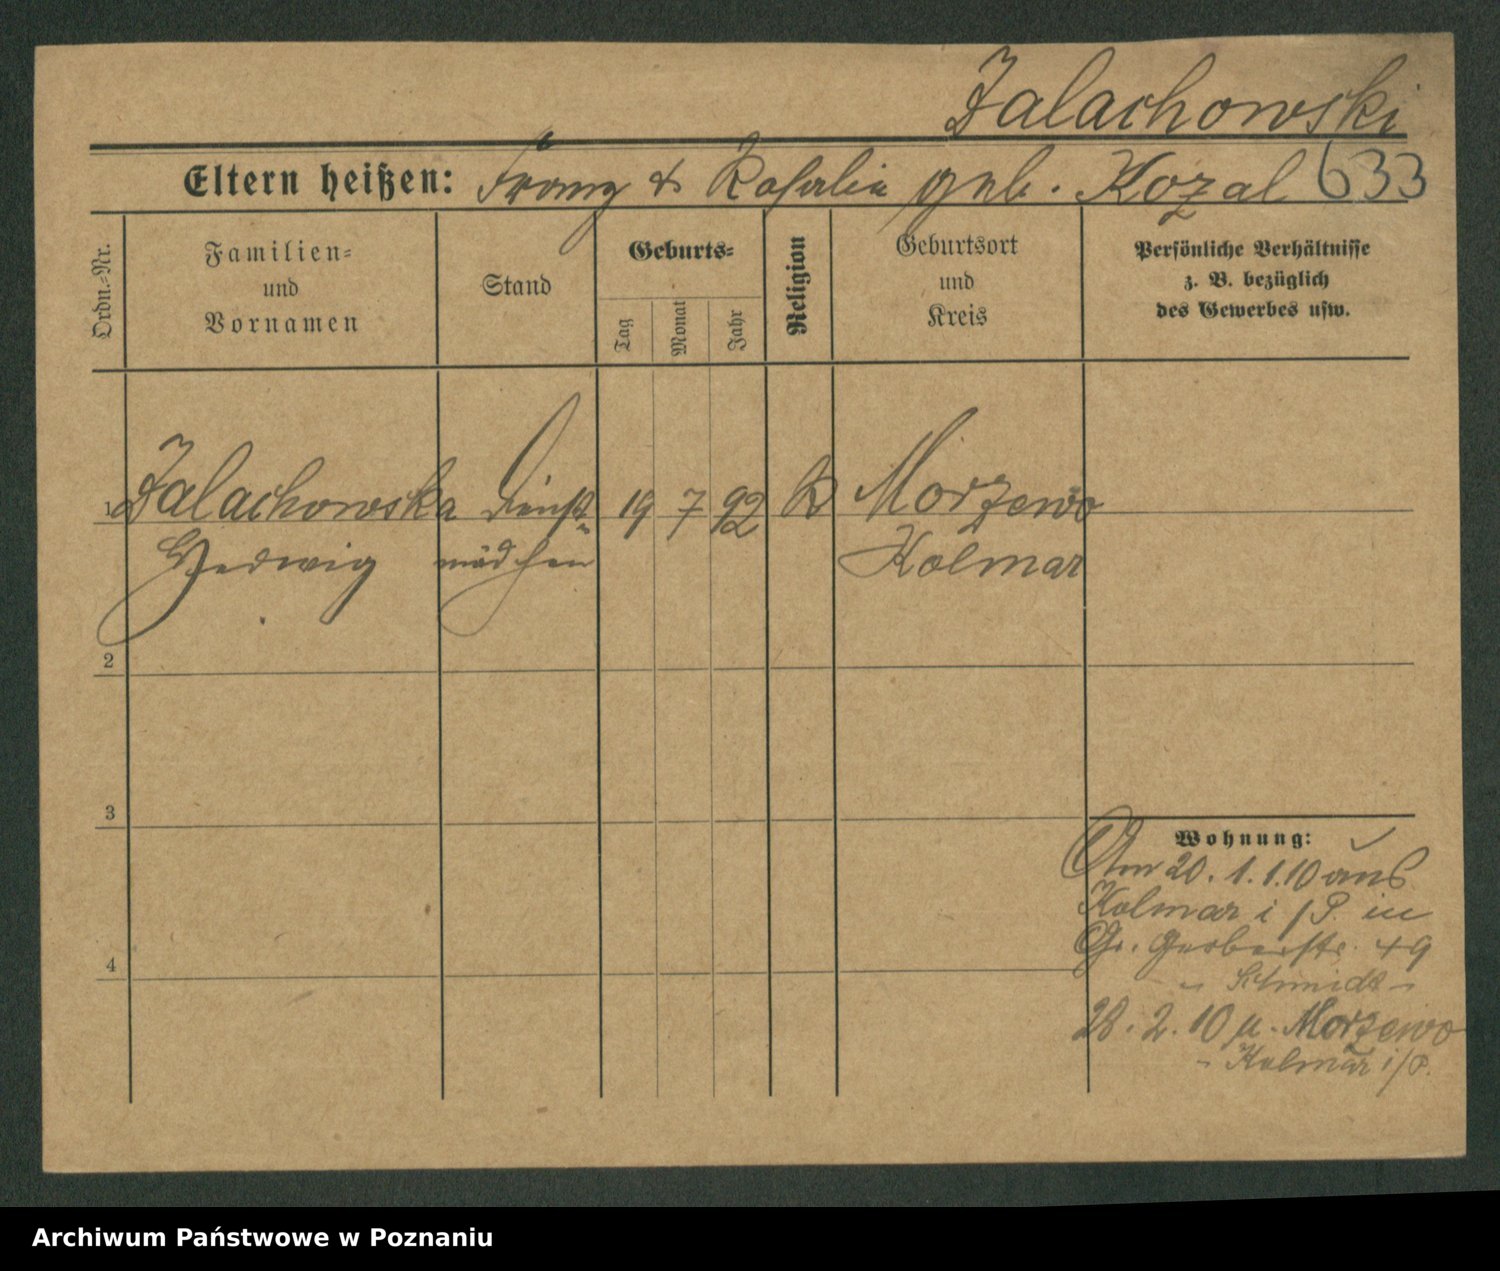 Zalachowski
Eltern heißen: Franz & Rosalie geb. Kozal 633
Ordn.-Nr.
Familien-
und
Vornamen
Stand
Geburts-
Tag
Monat
Jahr
Religion
Geburtsort
und
Kreis
Persönliche Verhältnisse
z. B. bezüglich
des Gewerbes usw.
1 Zalachowska Dienst- 19 7 92 K Morzewo
Hedwig mädchen Kolmar
2
3
Wohnung:
Am 20. 1. 1.10 aus
Kolmar i/P. in
Gr. Gerberstr. 49
4
- Schmidt -
28. 2. 10 n. Morzewo
- Kolmar i/P.
Archiwum Państwowe w Poznaniu